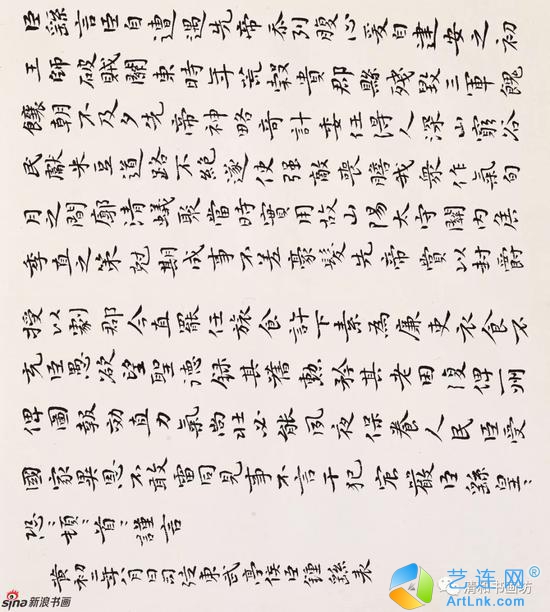 臣繇言臣自遭遇先帝忝列腹心爰自建安之初
王師破賊關東時年荒穀貴郡縣殘毀三軍餽
饟朝不及夕先帝神略奇計委任得人深山窮谷
民獻米豆道路不絕遂使強敵喪膽我眾作氣旬
月之間廓清蟻聚當時實用故山陽太守關內侯
季直之策尅期成事不差豪髮先帝賞以封爵
授以劇郡今直罷任旅食許下素為廉吏衣食不
充臣愚欲望聖德錄其舊勳矜其老困復俾一州
俾圖報効直力氣尚壯必能夙夜保養人民臣受
國家異恩不敢雷同見事不言干犯宸嚴臣繇皇〻
恐〻頓〻首〻謹言
黃初二年八月日司徒東武亭侯臣鍾繇表
sina新浪书画
清和书画坊
艺连网®
ArtLnk.com